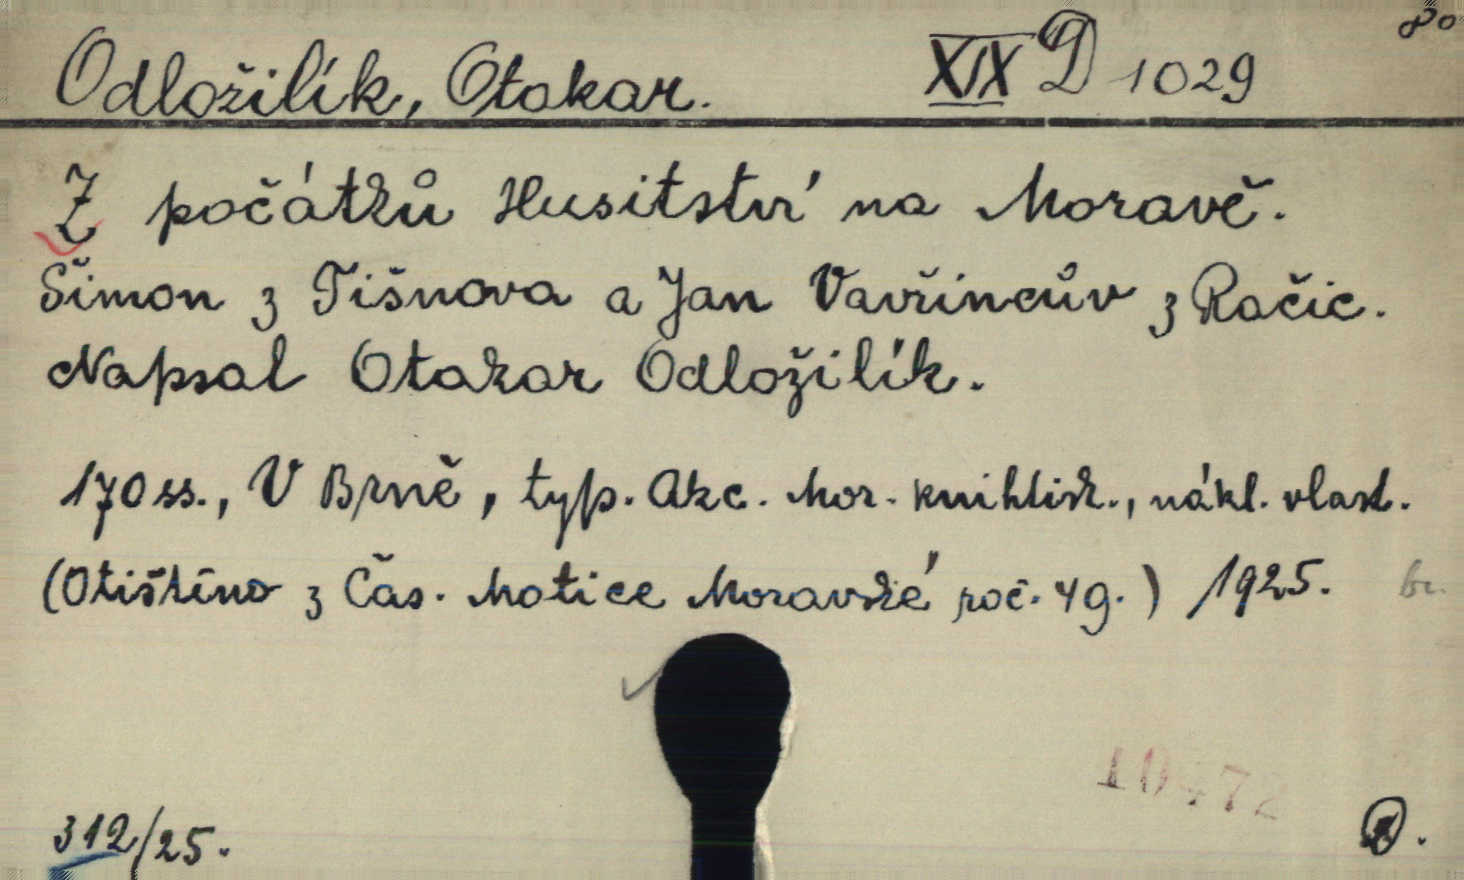 8°
Odložilík, Otakar. XIX D 1029
Z počátků Husitství na Moravě.
Šimon z Tišnova a Jan Vavřincův z Račic.
Napsal Otakar Odložilík.
170 ss., V Brně, typ. Akc. Mor. knihtisk., nákl. vlast.
(Otištěno z Čas. Matice Moravské roč. 49.) 1925. br.
10472
312/25.